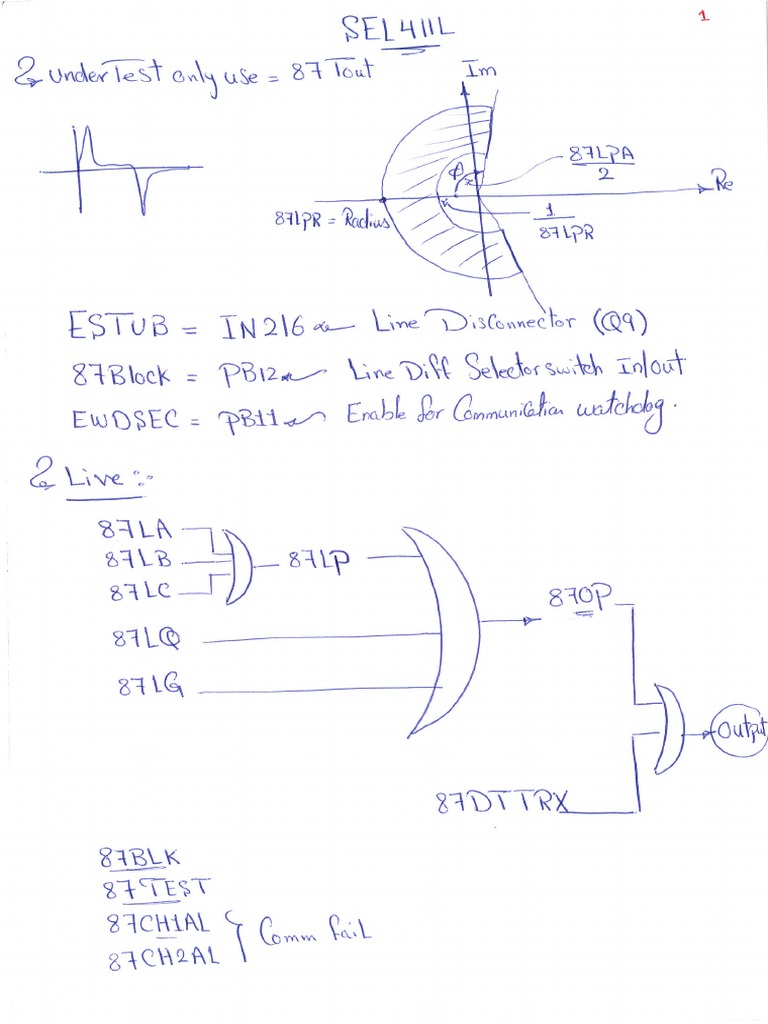 SEL411L
1
& Under Test only use = 87Tout
Im
87LPA
2
Φ
Re
87LPR = Radius
1
87LPR
ESTUB = IN216 Line Disconnector (Q9)
87Block = PB12 Line Diff Selector switch In/out
EWDSEC = PB11 Enable for Communication watchdog.
& Live :-
87LA
87LB
87LC
87LP
87LQ
87LG
87OP
Output
87DTTRX
87BLK
87TEST
87CH1AL
87CH2AL
Comm fail